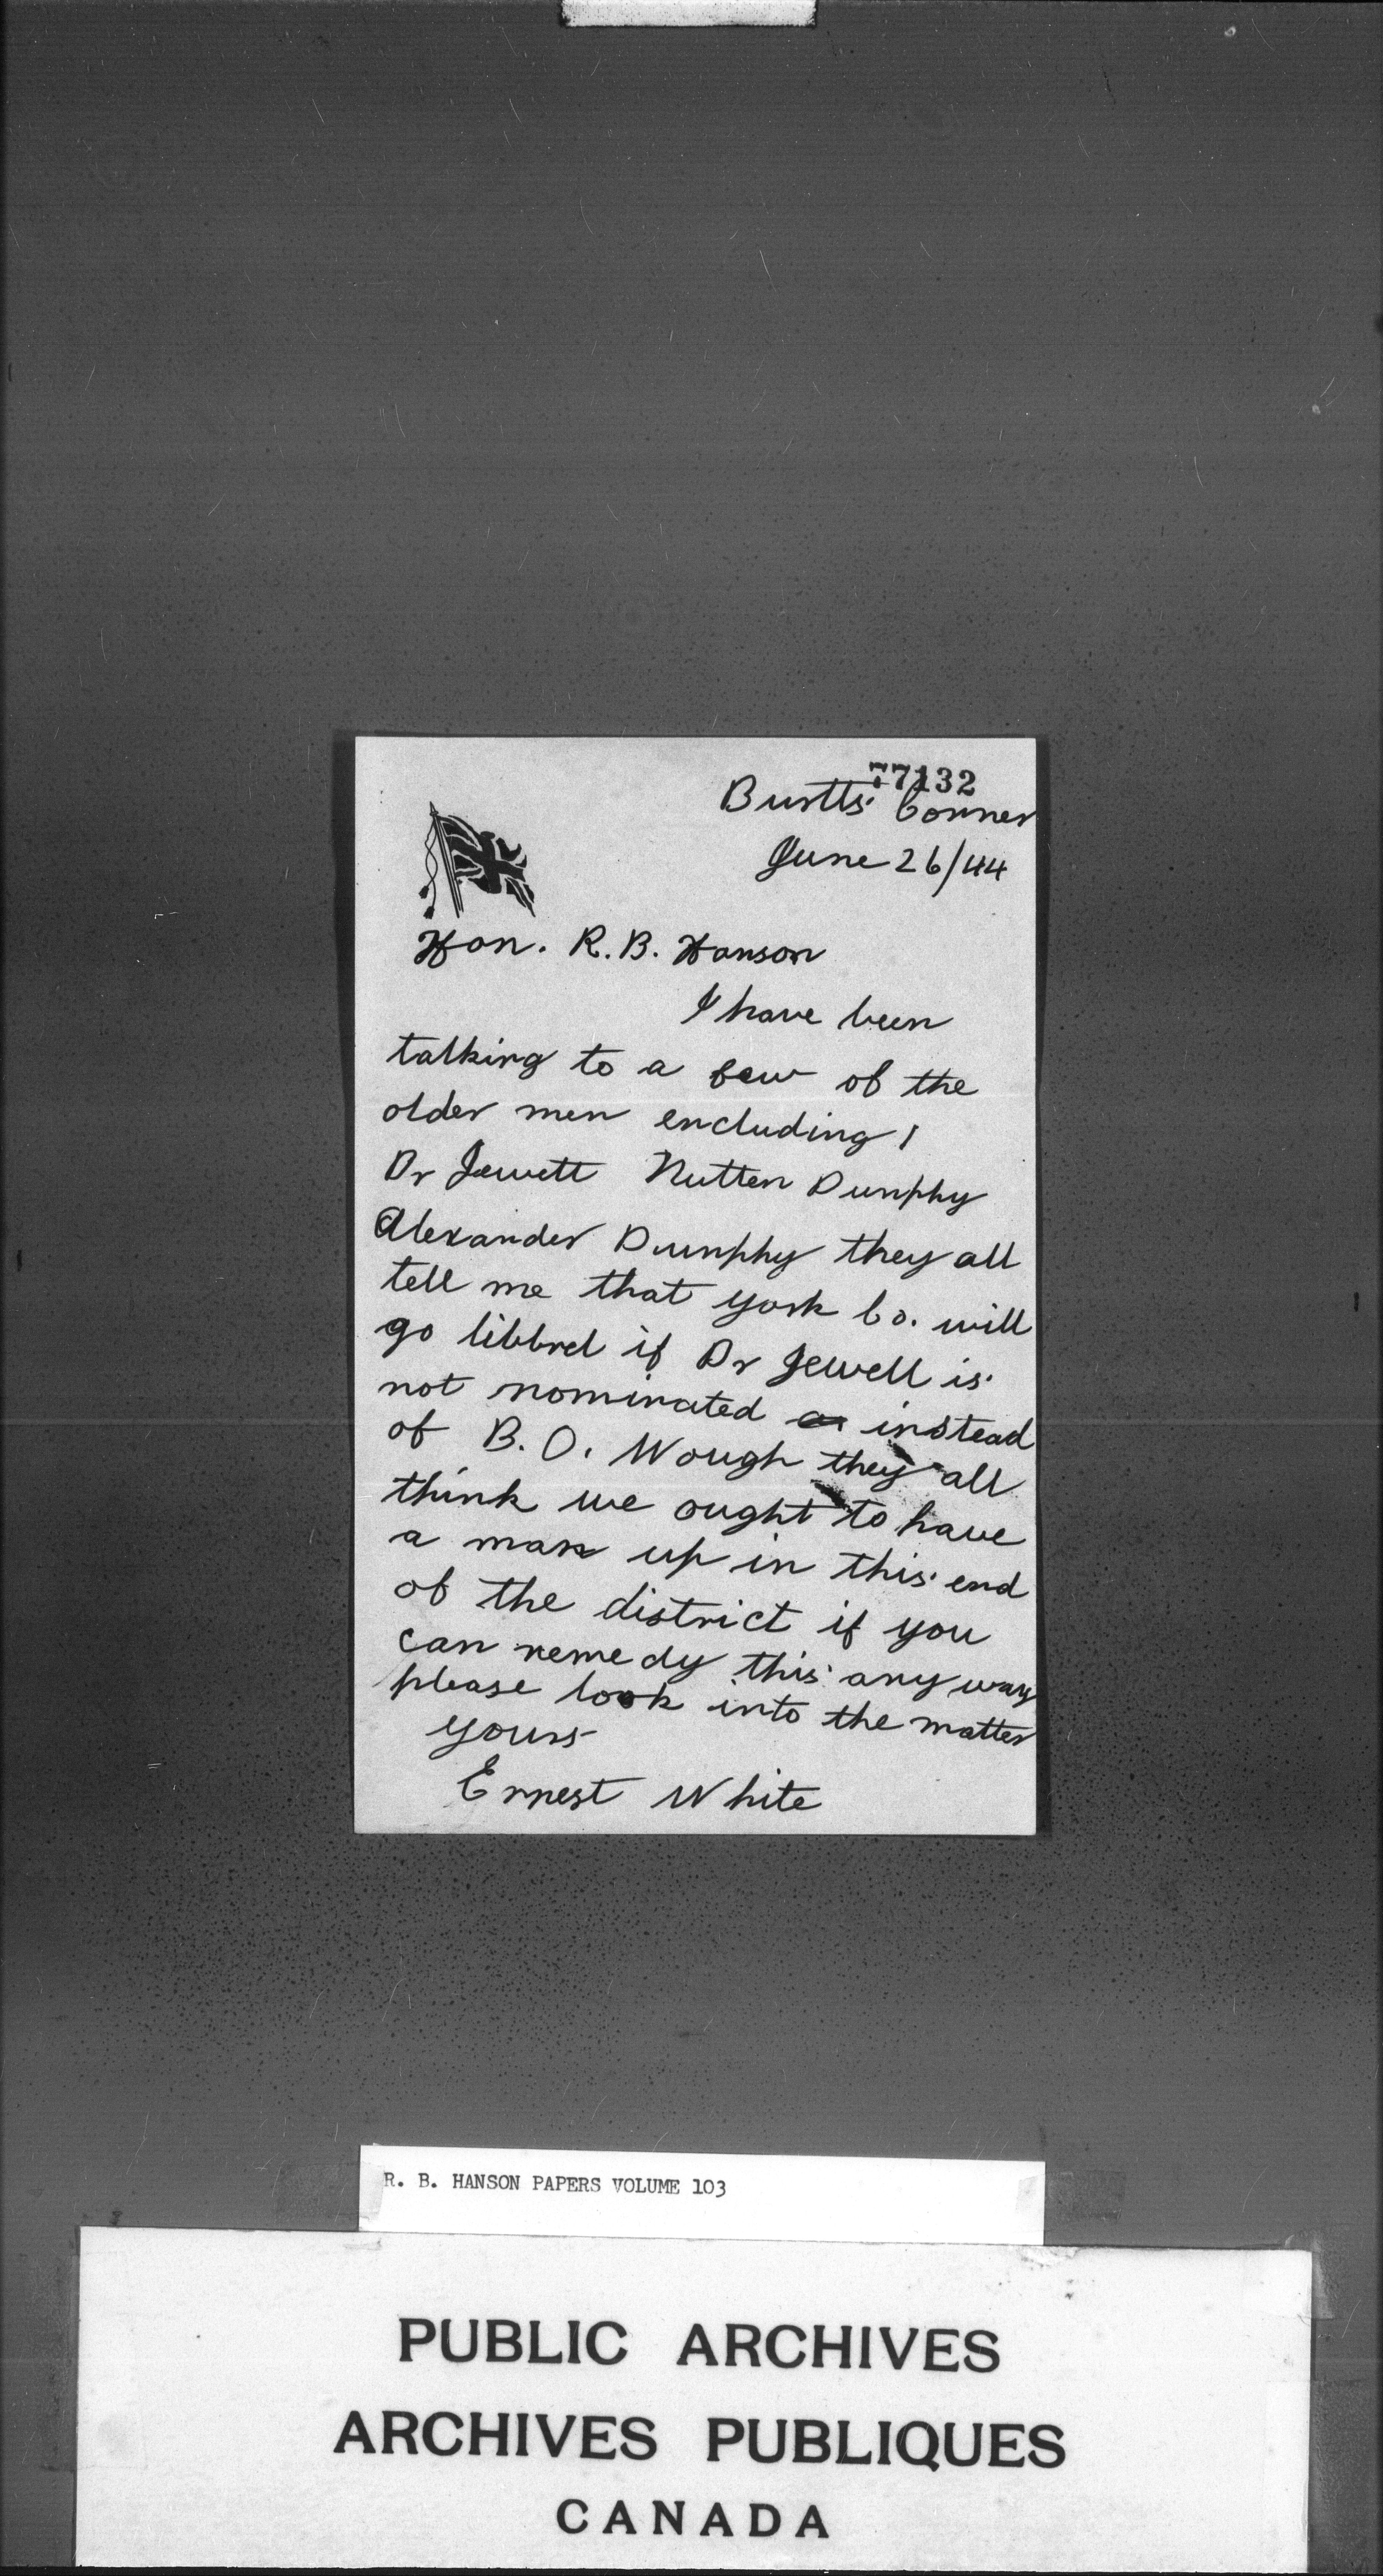 77132
Burtts Corner
June 26/44
Hon. R. B. Hanson
I have been
talking to a few of the
older men encluding
Dr Jewett Nutten Dunphy
Alexander Dunphy they all
tell me that york Co. will
go libbrel if Dr Jewett is
not nominated instead
of B. O. Wough they all
think we ought to have
a man up in this end
of the district if you
can remedy this any way
please look into the matter
yours
Ernest White
R. B. HANSON PAPERS VOLUME 103
PUBLIC ARCHIVES
ARCHIVES PUBLIQUES
CANADA